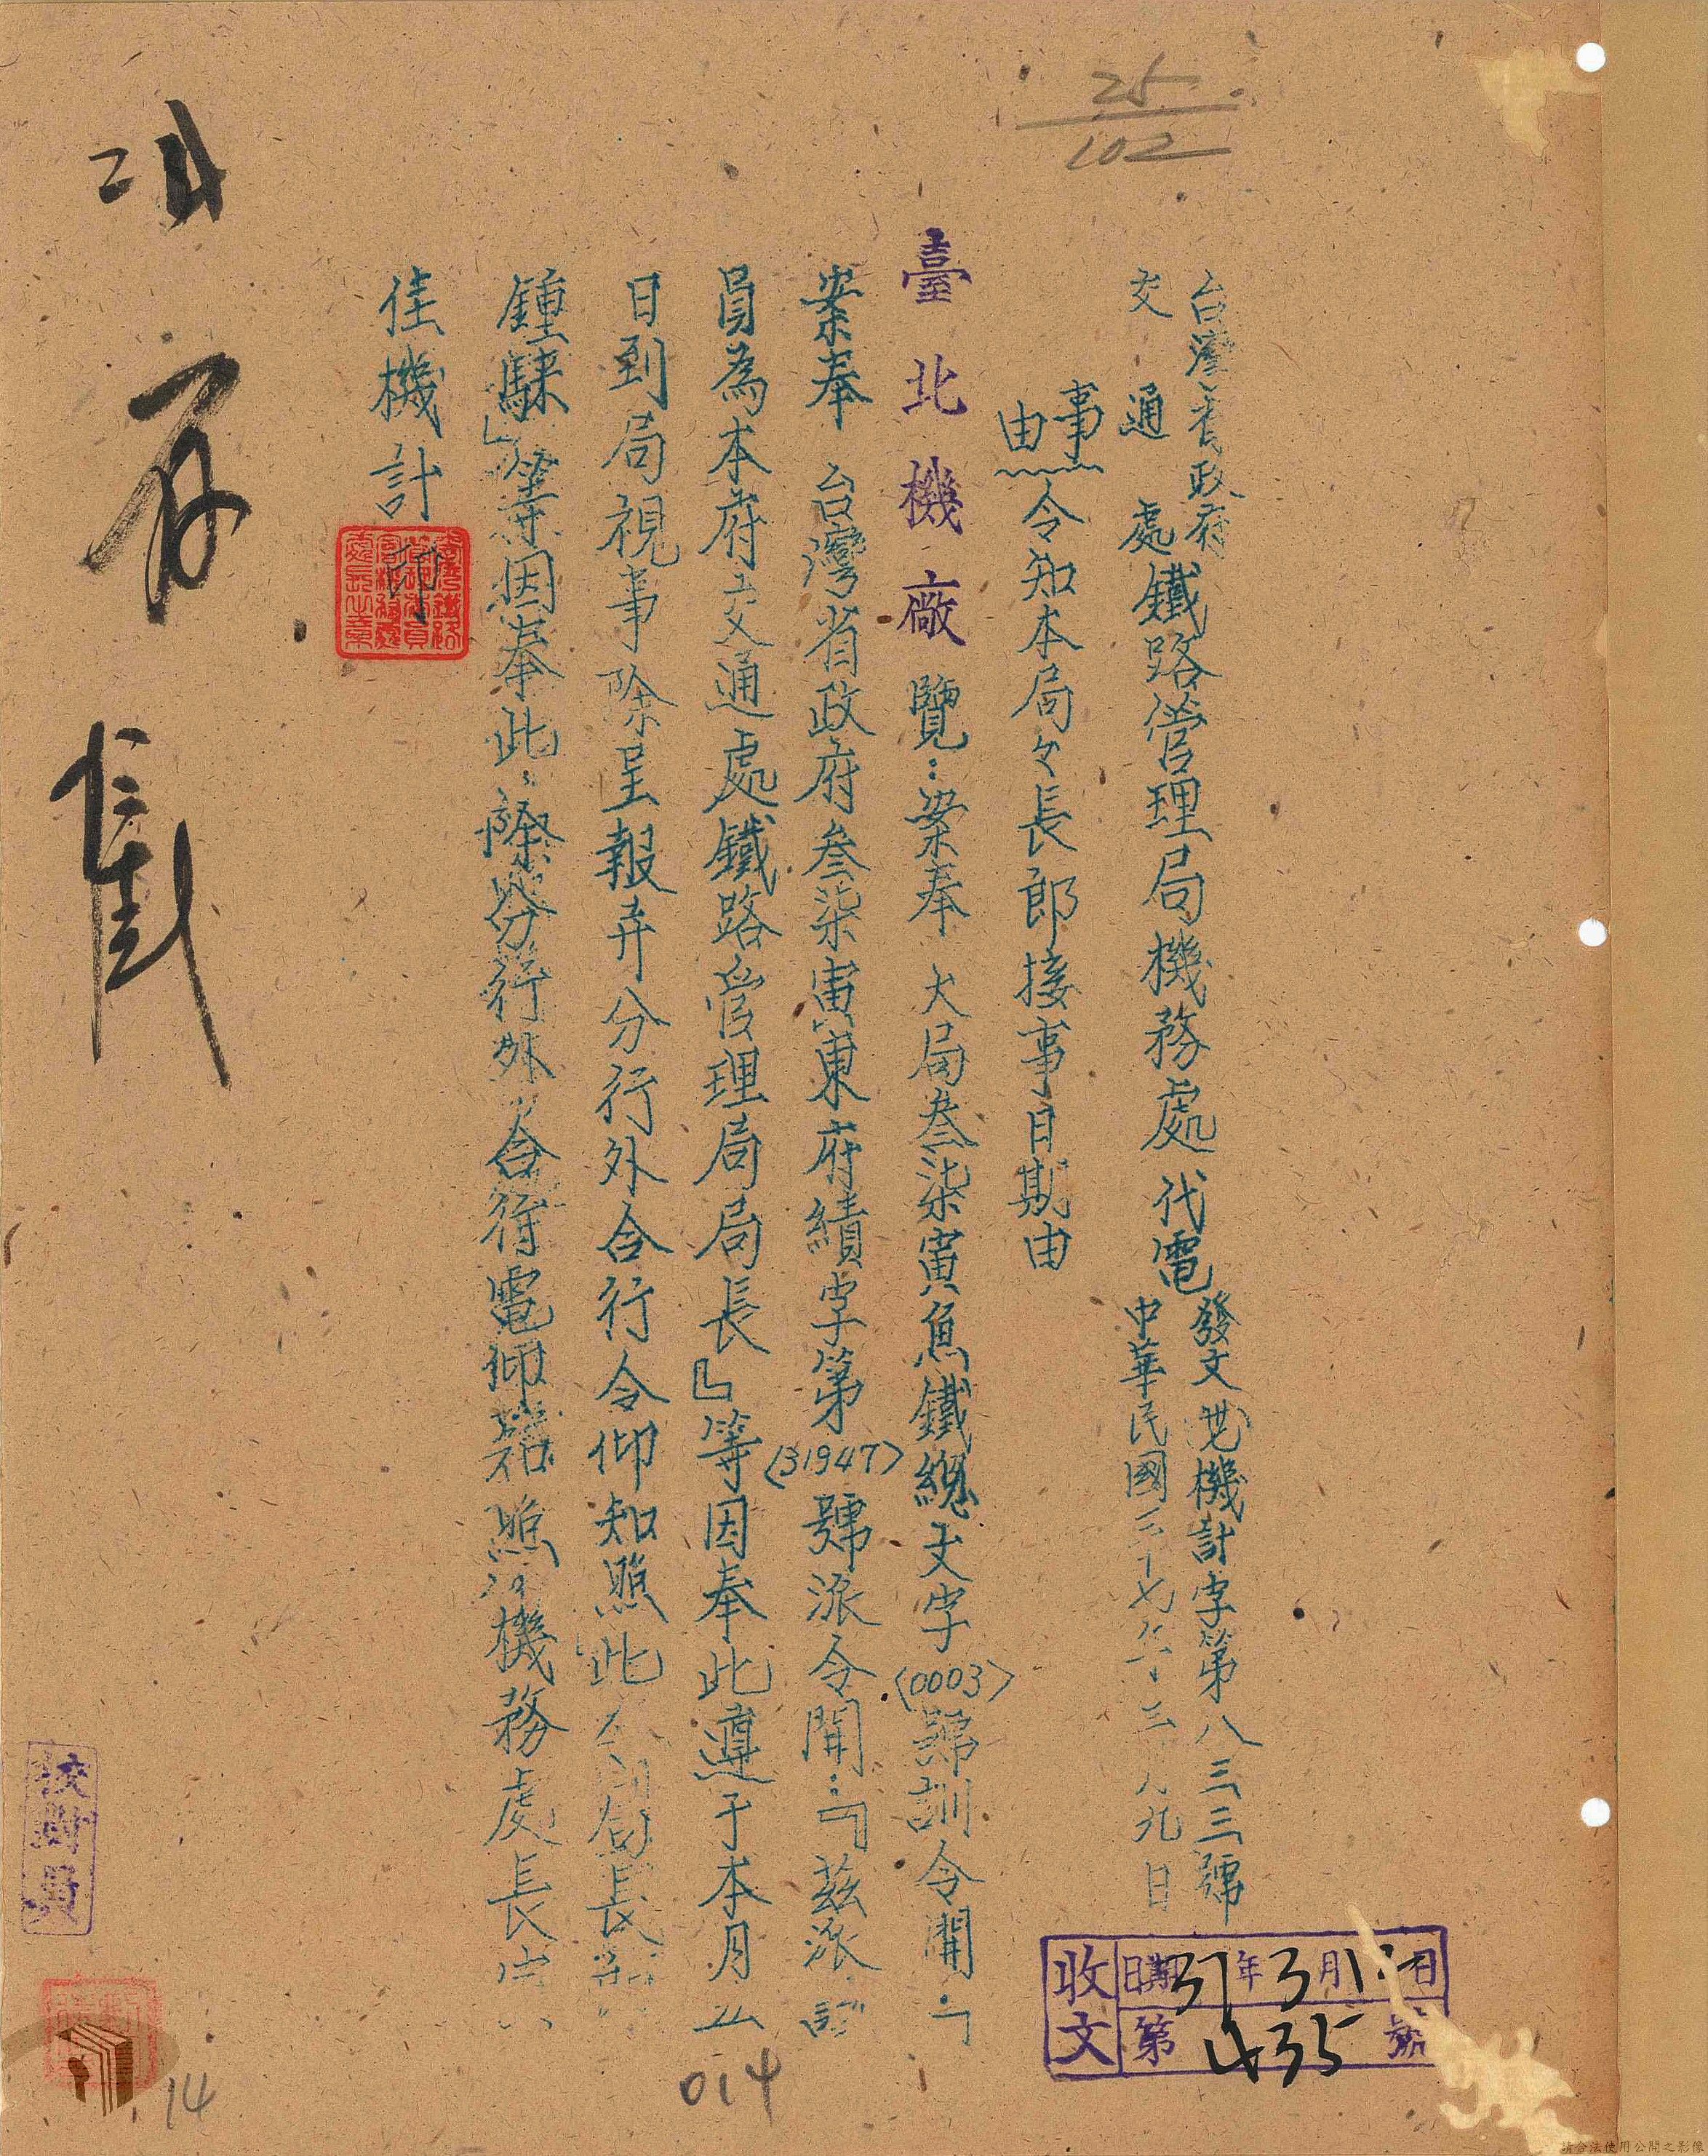 25
102
台灣省政府
交通處
鐵路管理局機務處代電
發文 機計字第八三三號
中華民國三十七年三月九日
事由
令知本局々長郎接事日期由
臺北機廠覽：案奉 大局叁柒寅魚鐵總文字(0003)號訓令開：「
案奉 台灣省政府叁柒寅東府績字第(31947)號派令開：『茲派
員為本府交通處鐵路管理局局長』等因奉此遵于本月
日到局視事除呈報弁分行外合行令仰知照此 局長
鍾騋」等因奉此：除分行外合行電仰 照 機務處長
佳機計
印
收文
日期37年3月1 日
第435號
校對員
014
14
請合法使用公開之影像